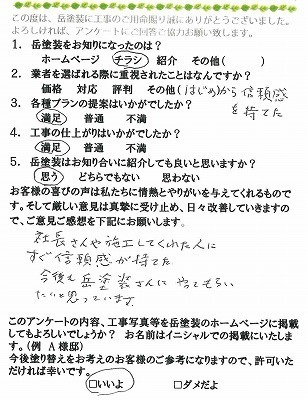 この度は、岳塗装に工事のご用命賜り誠にありがとうございました。
よろしければ、アンケートにご回答ご協力お願い致します。
1. 岳塗装をお知りになったのは?
ホームページ チラシ 紹介 その他( )
2. 業者を選ばれる際に重視されたことはなんですか?
価格 対応 評判 その他(はじめから信頼感
を持てた
3. 各種プランの提案はいかがでしたか?
満足 普通 不満
4. 工事の仕上がりはいかがでしたか?
満足 普通 不満
5. 岳塗装はお知り合いに紹介しても良いと思いますか?
思う どちらでもない 思わない
お客様の喜びの声は私たちに情熱とやりがいを与えてくれるものです。
そして厳しい意見は真摯に受け止め、日々改善していきますので、
ご意見ご感想を下記にお願いします。
社長さんや施工してくれた人に
すぐ信頼感が持てた
今後も岳塗装さんにやってもらい
たいと思っています。
このアンケートの内容、工事写真等を岳塗装のホームページに掲載
してもよろしいでしょうか? お名前はイニシャルでの掲載にいたしま
す。(例 A様邸)
今後塗り替えをお考えのお客様のご参考になりますので、許可いた
だければ幸いです。
□いいよ □ダメだよ